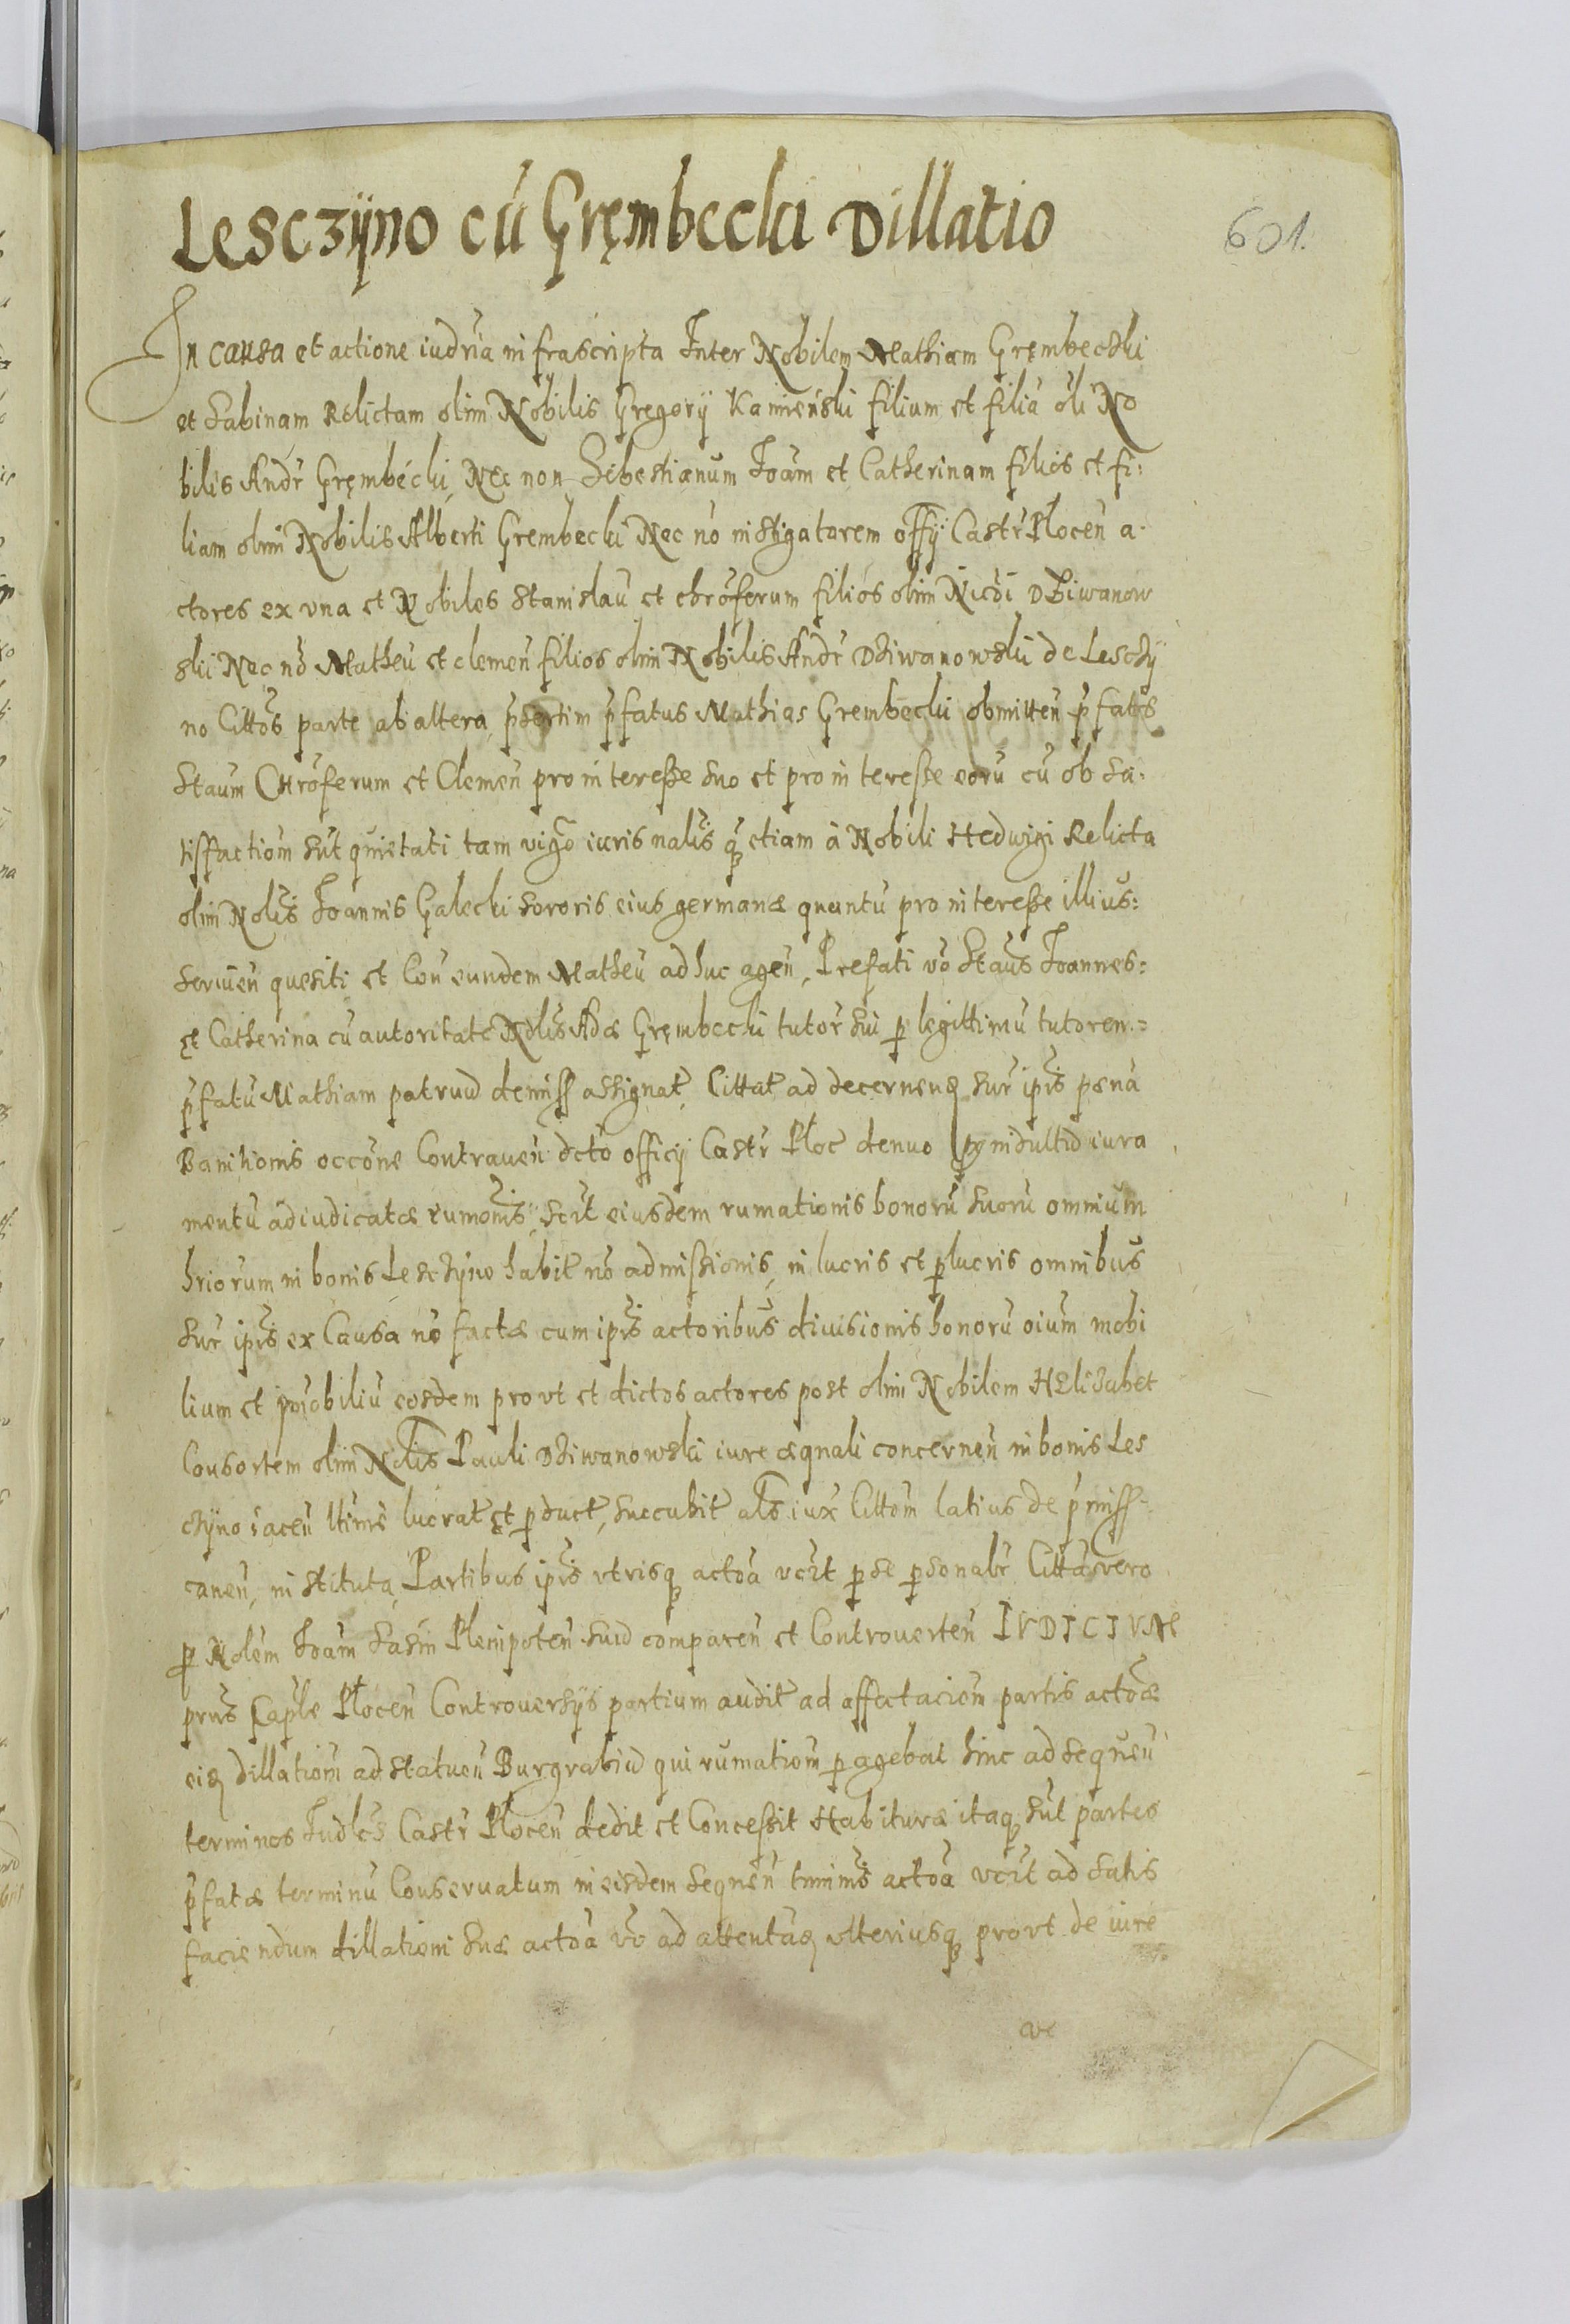 Lesczÿno cū Gręmbecki Dillatio
601.
In causa et actione iudrīa infrascripta Inter Nobilem Mathiam Gręmbecski
et Sabinam Relictam olim Nobilis Gregorÿ Kamieński filium et filiā oli No
bilis Andr Gręmbécki, Nec non Sebestianum Joām et Catherinam filios et fi:
liam olim Nobilis Alberti Grembecki Nec nō instigatorem offÿ Castr Plocen̄ a
ctores ex vna et Nobiles Stanislaū et chrōferum filiós olim Nicōi Dziwanow
skii Nec nō Matheū et clemen̄ filios olim Nobilis Andr Dziwanowski de Lesczÿ
no Cittōs parte ab altera, p̄sertim p̄fatus Mathias Grembecki obmitten̄ p̄fatōs
Staūm Chrōferum et Clemen̄ pro interesse suo et pro interesse eorū cū ob sa:
tisfactiōm sūt quietati tam vigō iuris nalis̄ q̄ꝫ etiam à Nobili Hedwigi Relicta
olim Nolis̄ Joannis Galecki sororis eius germanæ quantū pro interesse illius:
serviēn quesiti et Con̄ eundem Matheū adhuc agen̄, Prefati vō Staūs Joannes:
et Catherina cū autoritate Nōlis̄ Adæ Gręmbecki tutor̄ sui ꝑ legittimū tutoren:
p̄fatū Mathiam patruū demiss assignat̄, Cittat̄ ad decernenꝫ sur̄ ipīs pæna
Banitionis occōne Contraven̄ dctō officÿ Castr Ploc̄ denuo ꝑ indultū iura
mentū adiudicatæ rumōnis̄, scīlt eiusdem rumationis bonorū suorū omnium
hriorum in bonis Lesczÿno habit̄ nō admissionis, in lucris et ꝑlucris omnibus
sur̄ ipīs ex Causa nō factæ cum ipīs actoribūs diuisionis bonorū oium mobi
lium et im̄obiliū eosdem prout et dictos actores post olim Nobilem Helisabet
Consortem olim Nōlis Pauli Dziwanowski iure æquali concernen̄ in bonis Les
czÿno iacen̄ ltimē lucrat̄ et ꝑduct̄, succubit̄ als̄ iux̄ Cittōm latius de p̄miss
canen̄, instituta, Partibus ipīs utrisqꝫ actōa vcīlt ꝑ se ꝑsonalr̄ Cittā vero
ꝑ Nōlem Joām Sasin Plenipoten̄ suū comparen̄ et Controuerten̄ IVDICIVM
pn̄s Caple Plocen̄ Controversÿs partium audit̄ ad affectaciōm partis actōæ
eiꝫ dillatiōm ad statuen̄ Burgrabiū qui rumatiōm ꝑagebat hinc ad sequen̄
terminos Judlēs Castr Plocen̄ dedit et Concessit Habituræ itaqꝫ sūt partes
p̄fatæ terminū Conservatum in eisdem sequen̄ tminīs actōā vcīlt ad satis
faciendum dillationi suæ actōā vō ad attentāꝫ ulteriusqꝫ prout de iure